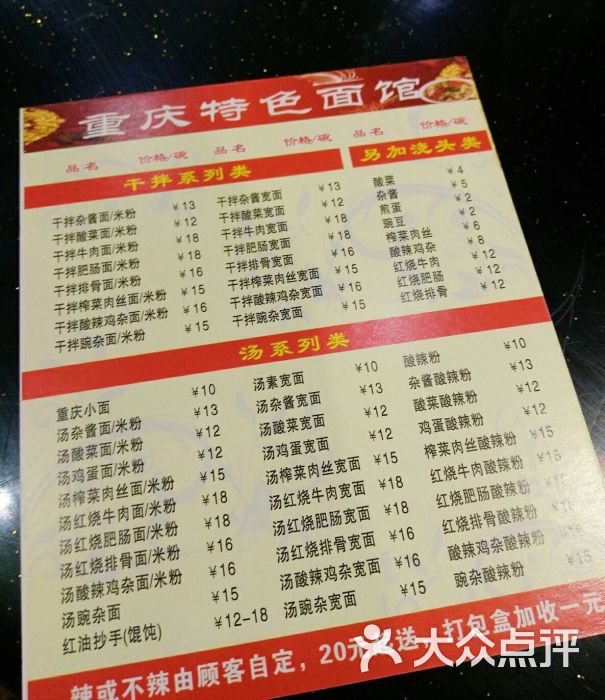 重庆特色面馆
品名 价格/碗 品名 价格/碗 品名 价格/碗
干拌系列类
干拌杂酱面/米粉 ¥13 干拌杂酱宽面 ¥13
干拌酸菜面/米粉 ¥12 干拌酸菜宽面 ¥12
干拌牛肉面/米粉 ¥18 干拌牛肉宽面 ¥18
干拌肥肠面/米粉 ¥18 干拌肥肠宽面 ¥18
干拌排骨面/米粉 ¥16 干拌排骨宽面 ¥16
干拌榨菜肉丝面/米粉 ¥15 干拌榨菜肉丝宽面 ¥15
干拌酸辣鸡杂面/米粉 ¥16 干拌酸辣鸡杂宽面 ¥16
干拌豌杂面/米粉 ¥15 干拌豌杂宽面 ¥15
另加浇头类
酸菜 ¥4
杂酱 ¥5
煎蛋 ¥2
豌豆 ¥2
榨菜肉丝 ¥6
酸辣鸡杂 ¥8
红烧牛肉 ¥12
红烧肥肠 ¥12
红烧排骨 ¥12
汤系列类
重庆小面 ¥10 汤素宽面 ¥10 酸辣粉 ¥10
汤杂酱面/米粉 ¥13 汤杂酱宽面 ¥13 杂酱酸辣粉 ¥13
汤酸菜面/米粉 ¥12 汤酸菜宽面 ¥12 酸菜酸辣粉 ¥12
汤鸡蛋面/米粉 ¥12 汤鸡蛋宽面 ¥12 鸡蛋酸辣粉 ¥12
汤榨菜肉丝面/米粉 ¥15 汤榨菜肉丝宽面 ¥15 榨菜肉丝酸辣粉 ¥15
汤红烧牛肉面/米粉 ¥18 汤红烧牛肉宽面 ¥18 红烧牛肉酸辣粉 ¥18
汤红烧肥肠面/米粉 ¥18 汤红烧肥肠宽面 ¥18 红烧肥肠酸辣粉 ¥18
汤红烧排骨面/米粉 ¥16 汤红烧排骨宽面 ¥16 红烧排骨酸辣粉 ¥16
汤酸辣鸡杂面/米粉 ¥16 汤酸辣鸡杂宽面 ¥16 酸辣鸡杂酸辣粉 ¥15
汤豌杂面 ¥15 汤豌杂宽面 ¥15 豌杂酸辣粉 ¥15
红油抄手(馄饨) ¥12-18
辣或不辣由顾客自定,20元 送 打包盒加收一元
大众点评